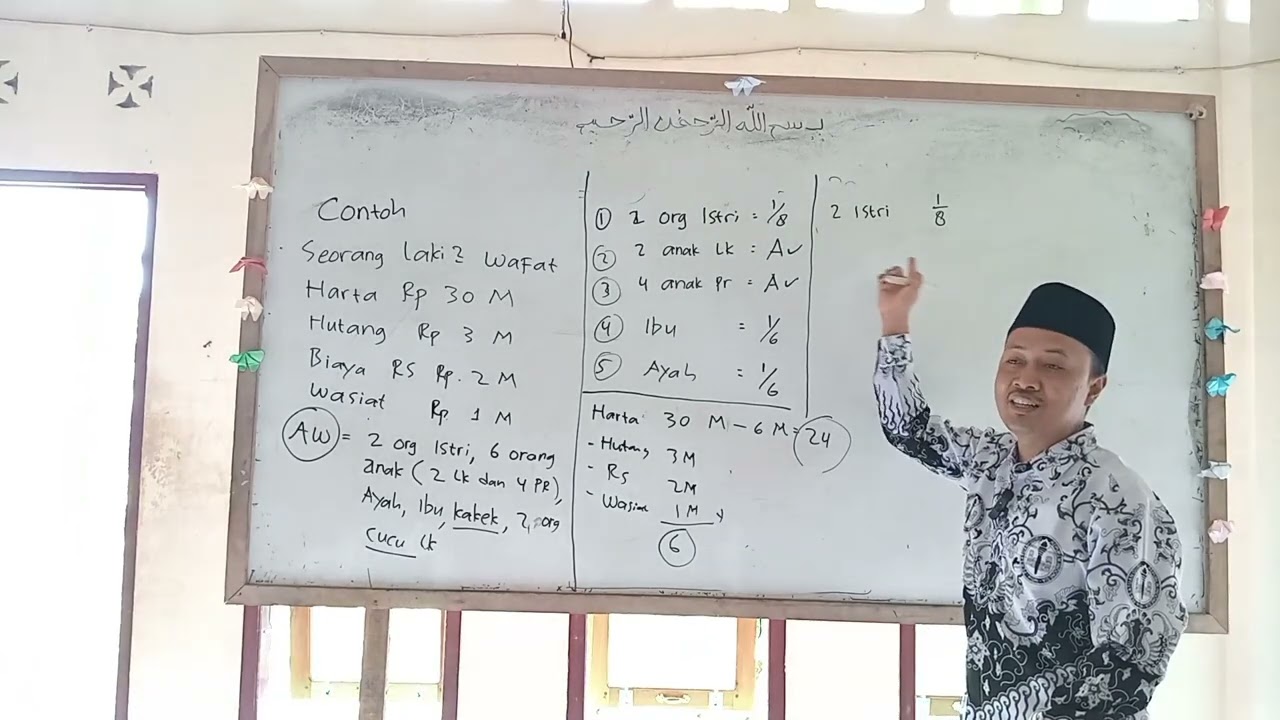 بسم الله الرّحمن الرّحيم
Contoh
Seorang laki2 wafat
Harta Rp 30 M
Hutang Rp 3 M
Biaya RS Rp. 2 M
Wasiat Rp 1 M
AW = 2 org Istri, 6 orang
anak (2 Lk dan 4 PR),
Ayah, Ibu, kakek, 2 org
cucu lk
① 2 org Istri = 1/8
② 2 anak Lk = A
③ 4 anak Pr = A
④ Ibu = 1/6
⑤ Ayah = 1/6
Harta 30 M - 6 M = 24
- Hutang 3 M
- RS 2 M
- Wasiat 1 M
6
2 Istri 1/8